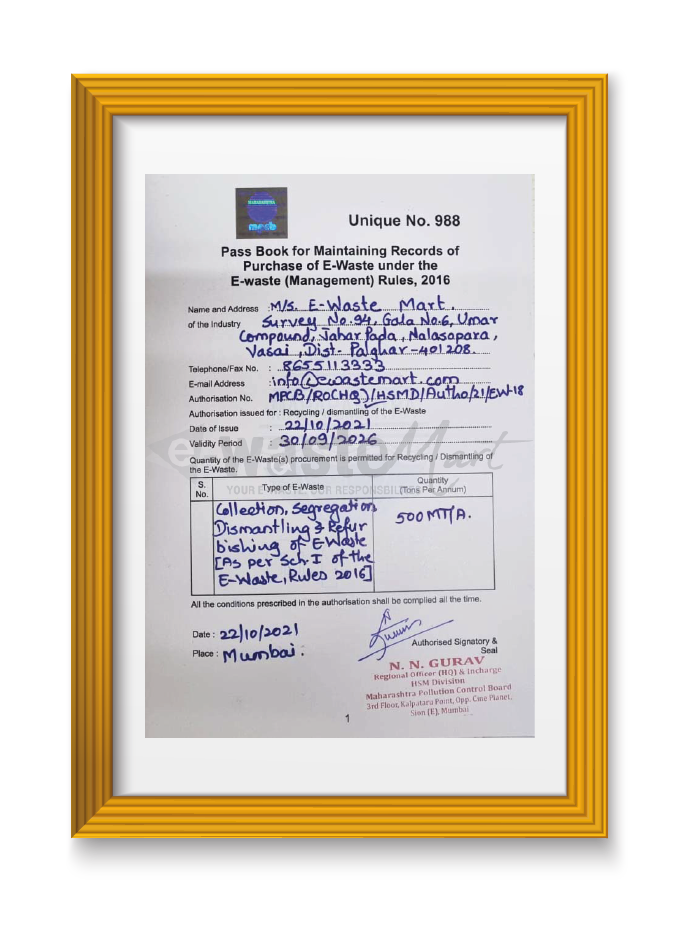 MAHARASHTRA
mpcb
Unique No. 988
Pass Book for Maintaining Records of
Purchase of E-Waste under the
E-waste (Management) Rules, 2016
Name and Address : M/s. E-Waste Mart.
of the Industry Survey No.94, Gala No.6, Umar
Compound, Jahar Pada, Nalasopara,
Vasai, Dist- Palghar-401208.
Telephone/Fax No. : 8655113333
E-mail Address : info@ewastemart.com
Authorisation No. MPCB/RO(HQ)/HSMD/Autho/21/EW-18
Authorisation issued for : Recycling / dismantling of the E-Waste
Date of Issue : 22/10/2021
Validity Period : 30/09/2026
eWaste Mart
Quantity of the E-Waste(s) procurement is permitted for Recycling / Dismantling of
the E-Waste.
YOUR E-WASTE, OUR RESPONSIBILITY
S. No. Type of E-Waste Quantity (Tons Per Annum)
Collection, Segregation, 500 MT/A.
Dismantling & Refur
bishing of E-Waste
[As per Sch.I of the
E-Waste, Rules 2016]
All the conditions prescribed in the authorisation shall be complied all the time.
Date : 22/10/2021
Place : Mumbai.
Authorised Signatory &
Seal
N. N. GURAV
Regional Officer (HQ) & Incharge
HSM Division
Maharashtra Pollution Control Board
3rd Floor, Kalpataru Point, Opp. Cine Planet,
Sion (E), Mumbai
1